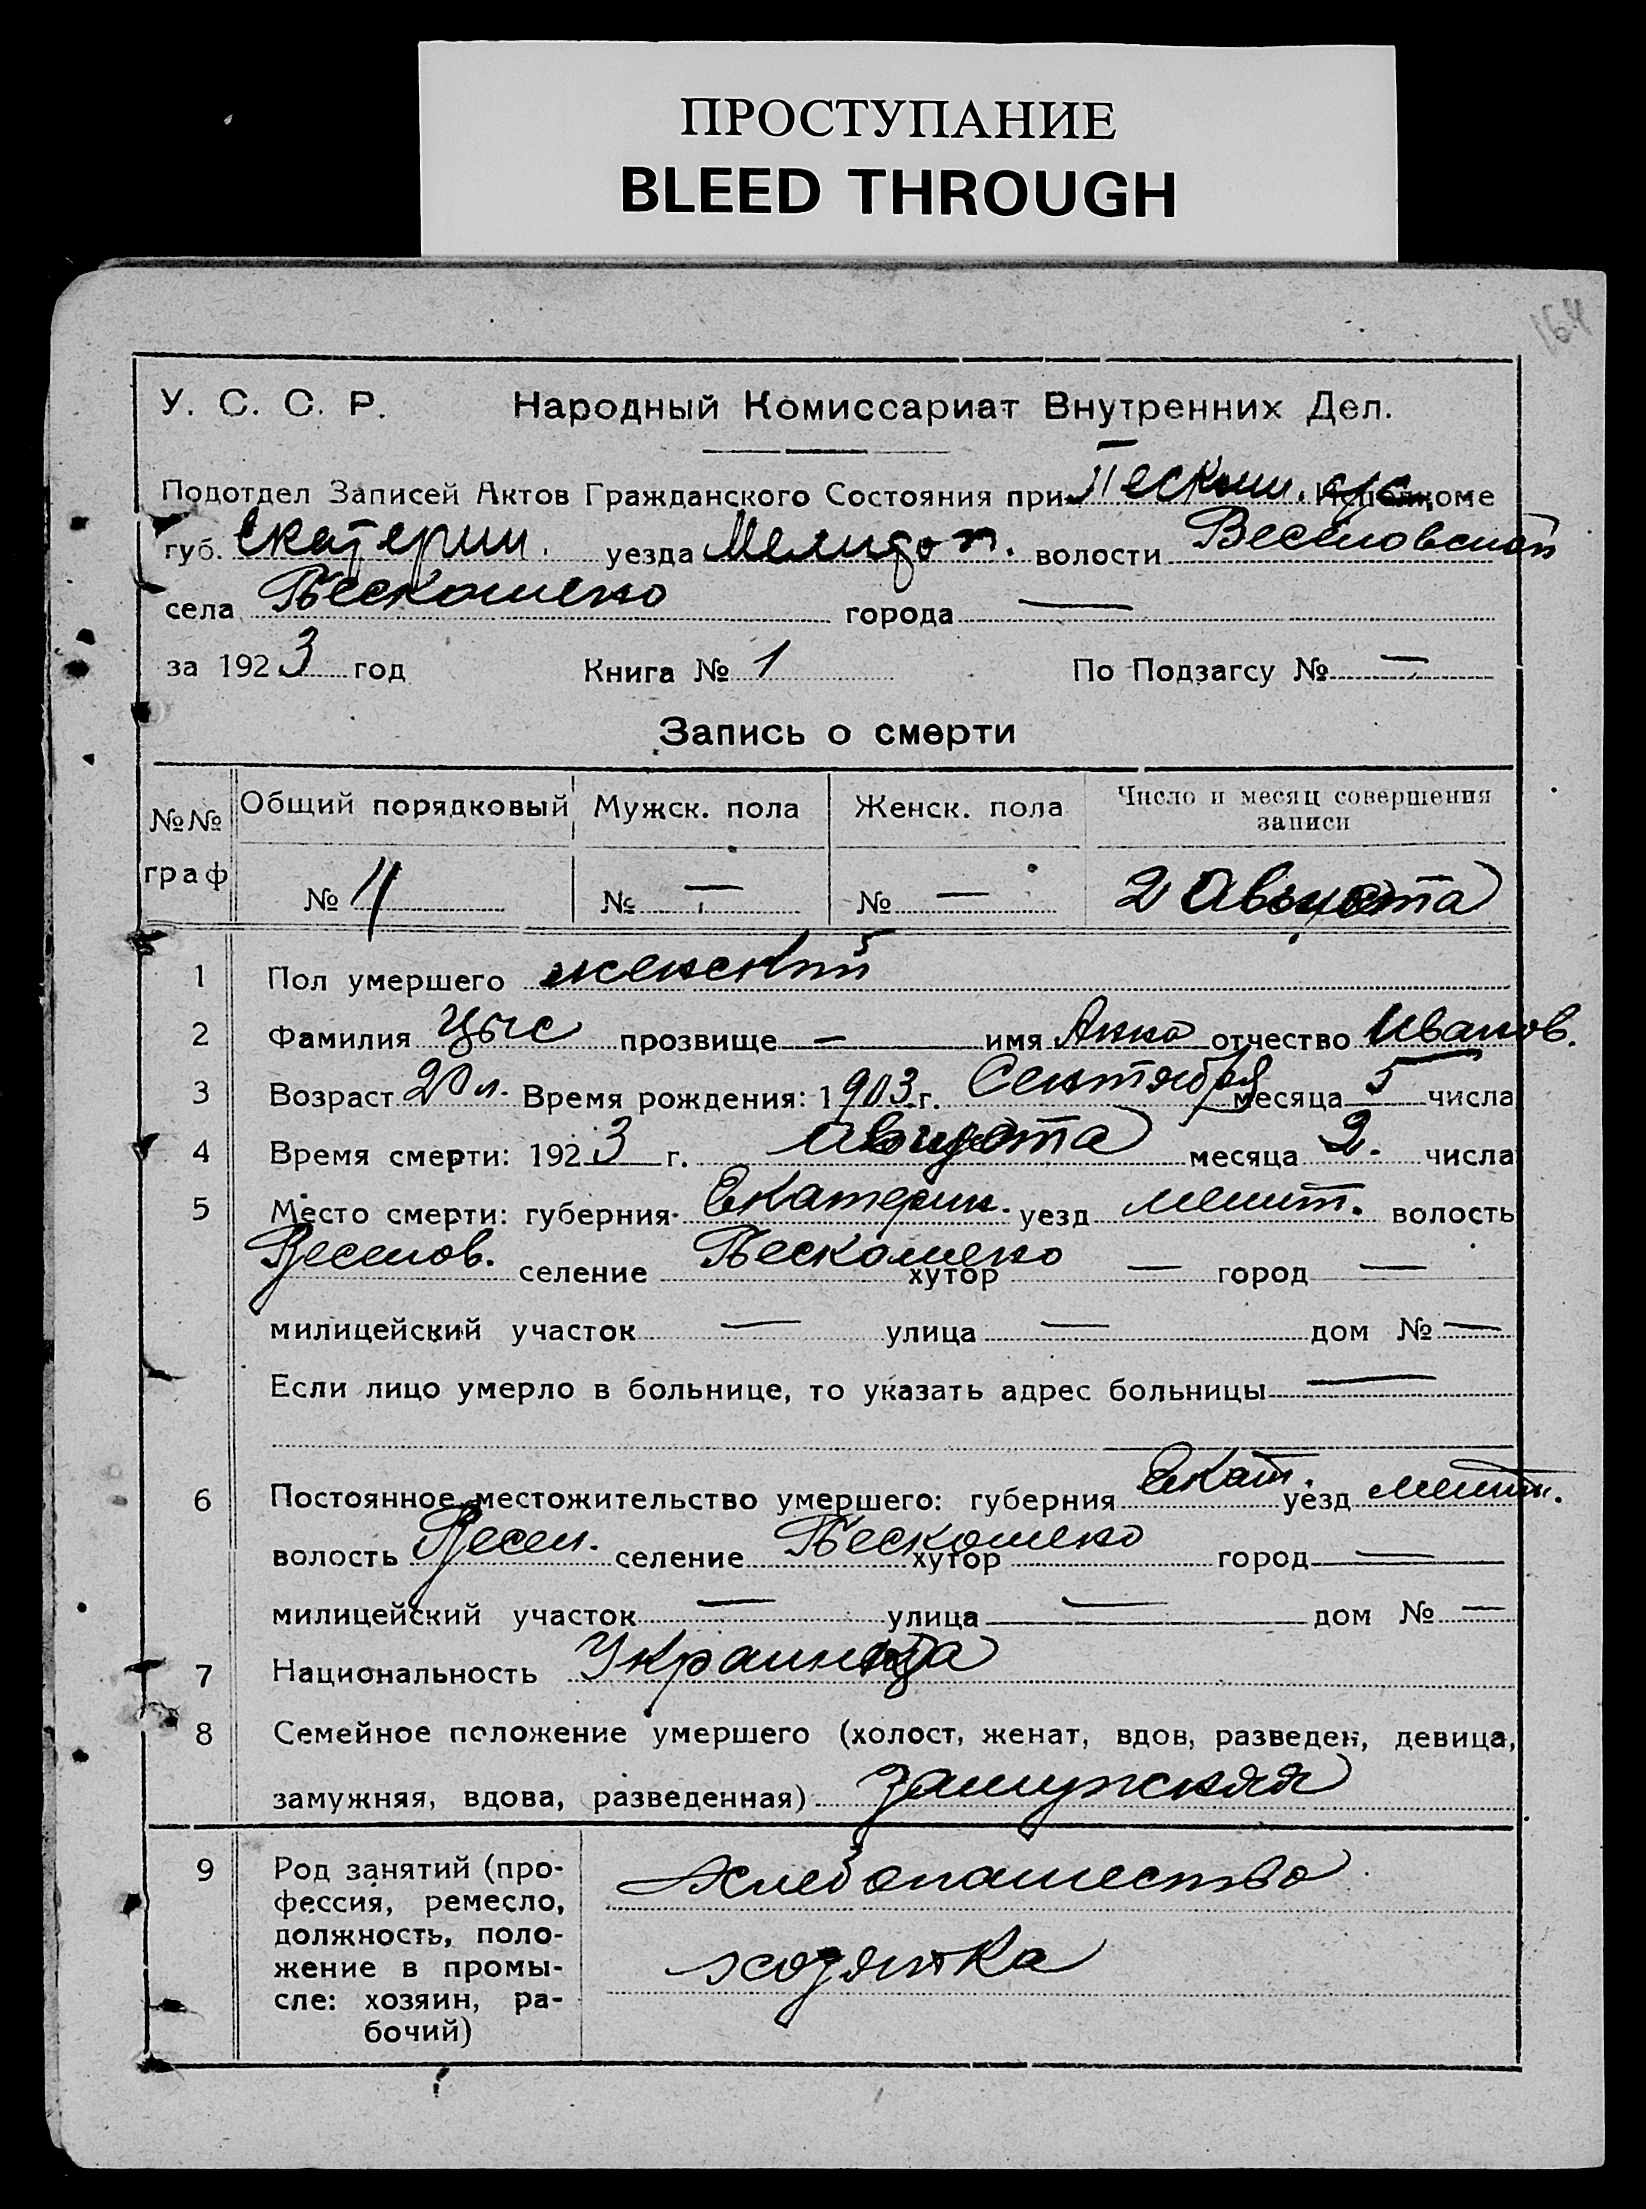 ПРОСТУПАНИЕ
BLEED THROUGH
164
У. С. С. Р. Народный Комиссариат Внутренних Дел.
Подотдел Записей Актов Гражданского Состояния при Исполкоме
губ. Екатерин. уезда Мелитоп. волости Веселовской
села города —
за 1923 год Книга № 1 По Подзагсу № —
Запись о смерти
№№ граф Общий порядковый Мужск. пола Женск. пола Число и месяц совершения записи
№ № — № — 2 Августа
1 Пол умершего женский
2 Фамилия Цыс прозвище — имя Анна отчество Иванов.
3 Возраст 20 л. Время рождения: 1903 г. Сентября месяца 5 числа
4 Время смерти: 1923 г. Августа месяца 2. числа
5 Место смерти: губерния Екатерин. уезд Мелит. волость
Веселов. селение хутор — город —
милицейский участок — улица — дом № —
Если лицо умерло в больнице, то указать адрес больницы —
6 Постоянное местожительство умершего: губерния Екат. уезд Мелит.
волость Весел. селение хутор город —
милицейский участок — улица — дом № —
7 Национальность Украинка
8 Семейное положение умершего (холост, женат, вдов, разведен, девица,
замужняя, вдова, разведенная) замужняя
9 Род занятий (про-
фессия, ремесло,
должность, поло-
жение в промы-
сле: хозяин, ра-
бочий)
хлебопашество
хозяйка